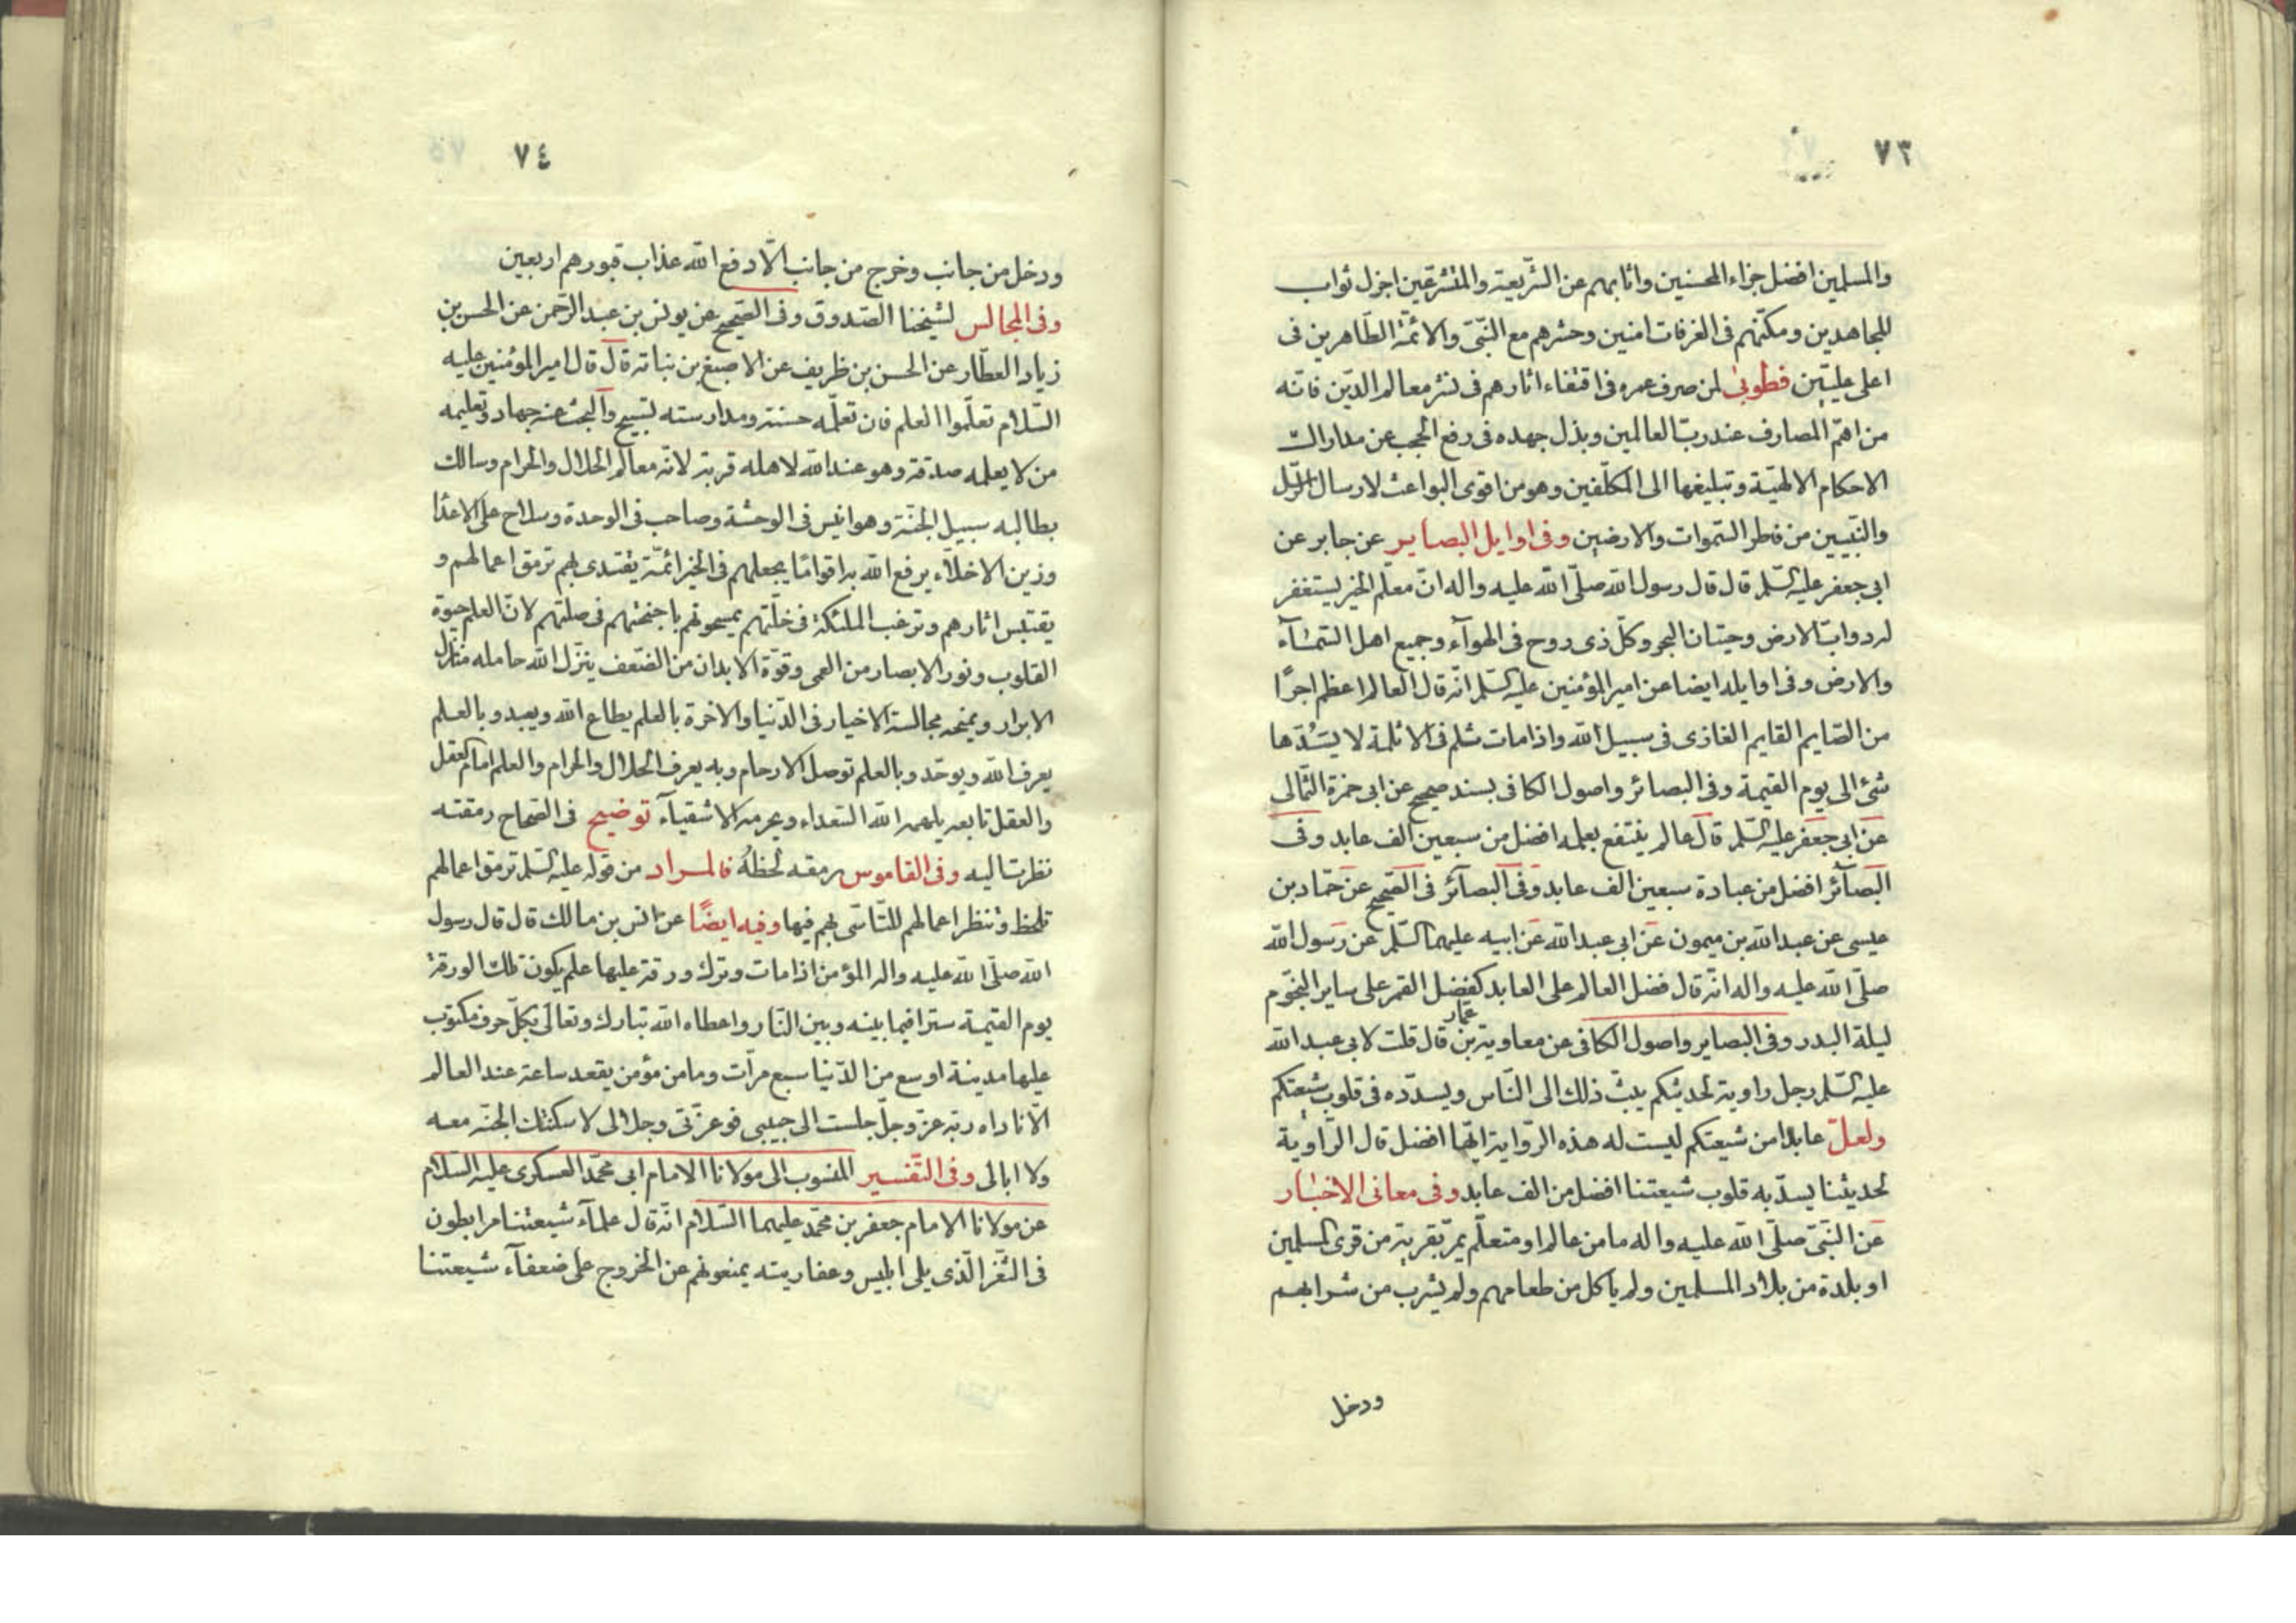 ٧٣
والمسلمين افضل جزاء المحسنين واثابهم عن الشّريعة والمتشرّعين اجزل ثواب
المجاهدين ومكّنهم فى الغرفات امنين وحشرهم مع النّبىّ والائمّة الطّاهرين فى
اعلى عليّين فطوبى لمن صرف عمره فى اقتفاء اثارهم فى نشر معالم الدّين فانّه
من اهمّ المصارف عند ربّ العالمين وبذل جهده فى رفع الحجب عن مدارك
الاحكام الالهيّة وتبليغها الى المكلّفين وهو من اقوى البواعث لارسال الرّسل
والنّبيين من فطر السّموات والارضين وفى اوايل البصاير عن جابر عن
ابى جعفر عليه السّلم قال قال رسول الله صلّى الله عليه واله انّ معلّم الخير يستغفر
له دوابّ الارض وحيتان البحر وكلّ ذى روح فى الهوآء وجميع اهل السّمآء
والارض وفى اوايله ايضا عن امير المؤمنين عليه السّلم انّه قال العالم اعظم اجرًا
من الصّايم القايم الغازى فى سبيل الله واذا مات ثلم فى الا ثلمة لا يسُدّها
شئ الى يوم القيمة وفى البصائر واصول الكافى بسند صحيح عن ابى حمزة الثّمالى
عن ابى جعفر عليه السّلم قال عالم ينتفع بعلمه افضل من سبعين الف عابد وفى
البصآئر افضل من عبادة سبعين الف عابد وفى البصآئر فى الصّحيح عن حمّاد بن
عيسى عن عبد الله بن ميمون عن ابى عبد الله عن ابيه عليهما السّلم عن رسول الله
صلّى الله عليه واله انّه قال فضل العالم على العابد كفضل القمر على ساير النّجوم
ليلة البدر وفى البصاير واصول الكافى عن معاوية بن عمّار قال قلت لابى عبد الله
عليه السّلم رجل راوية لحديثكم يبثّ ذلك الى النّاس ويسدّده فى قلوب شيعتكم
ولعلّ عابدا من شيعتكم ليست له هذه الرّواية ايّهما افضل قال الرّاوية
لحديثنا يسدّ به قلوب شيعتنا افضل من الف عابد وفى معانى الاخبار
عن النّبىّ صلّى الله عليه واله ما من عالم او متعلّم يمرّ بقرية من قرى المسلمين
او بلدة من بلاد المسلمين ولم ياكل من طعامهم ولم يشرب من شرابهم
ودخل
٧٤
ودخل من جانب وخرج من جانب الّا دفع الله عذاب قبورهم اربعين
وفى المجالس لشيخنا الصّدوق وفى الصّحيح عن يونس بن عبد الرّحمن عن الحسن بن
زياد العطّار عن الحسن بن ظريف عن الاصبغ بن نباتة قال قال امير المؤمنين عليه
السّلام تعلّموا العلم فان تعلّمه حسنة ومدارسته تسبيح والبحث عنه جهاد وتعليمه
من لا يعلمه صدقة وهو عند الله لاهله قربة لانّه معالم الحلال والحرام وسالك
بطالبه سبيل الجنّة وهو انيس فى الوحشة وصاحب فى الوحدة وسلاح على الاعدا
وزين الاخلّاء يرفع الله به اقوامًا يجعلهم فى الخير ائمّة يقتدى بهم ترمق اعمالهم و
يقتبس اثارهم وترغب الملئكة فى خلّتهم يمسحونهم باجنحتهم فى صلتهم لانّ العلم حيوة
القلوب ونور الابصار من العمى وقوّة الابدان من الضّعف ينزّل الله حامله منازل
الابرار ويمنحه مجالسة الاخيار فى الدّنيا والاخرة بالعلم يطاع الله ويعبد وبالعلم
يعرف الله ويوحّد وبالعلم توصل الارحام وبه يعرف الحلال والحرام والعلم امام العقل
والعقل تابعه يلهمه الله السّعداء ويحرمه الاشقيآء توضيح فى الصّحاح رمقته
نظرت اليه وفى القاموس رمقه لحظهُ فالمراد من قوله عليه السّلم ترمق اعمالهم
تلحظ وتنظر اعمالهم للتّاسّى بهم فيها وفيه ايضًا عن انس بن مالك قال قال رسول
الله صلّى الله عليه واله المؤمن اذا مات وترك ورقة عليها علم يكون تلك الورقة
يوم القيمة سترا فيما بينه وبين النّار واعطاه الله تبارك وتعالى بكلّ حرف مكتوب
عليها مدينة اوسع من الدّنيا سبع مرّات وما من مؤمن يقعد ساعة عند العالم
الّا ناداه ربّه عزّ وجلّ جلست الى حبيبى فوعزّتى وجلالى لاسكنتك الجنّة معه
ولا ابالى وفى التّفسير المنسوب الى مولانا الامام ابى محمّد العسكرى عليه السّلام
عن مولانا الامام جعفر بن محمّد عليهما السّلام انّه قال علمآء شيعتنا مرابطون
فى الثّغر الّذى يلى ابليس وعفاريته يمنعونهم عن الخروج على ضعفآء شيعتنا